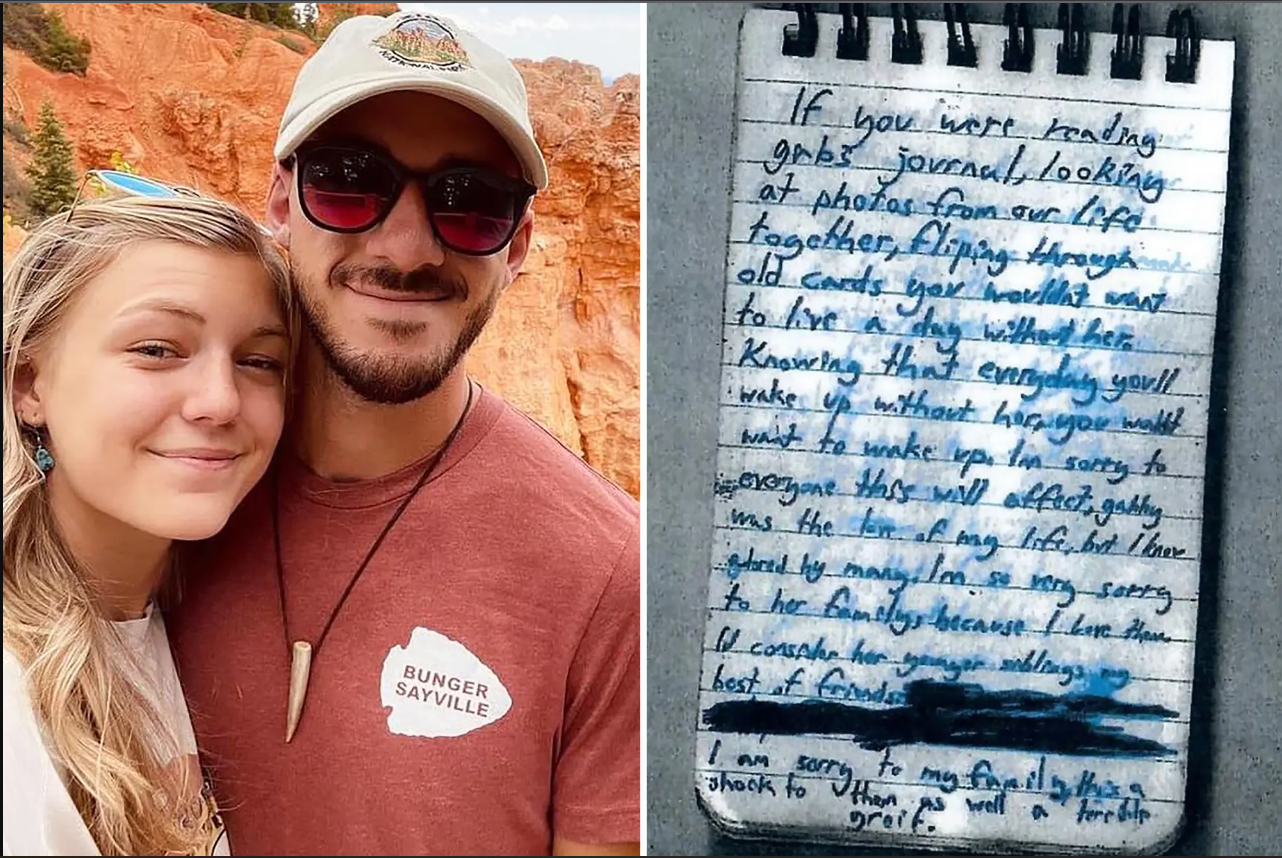 BUNGER
SAYVILLE
If you were reading
gabs journal, looking
at photos from our life
together, fliping through
old cards you wouldnt want
to live a day without her.
Knowing that everyday you'll
wake up without her, you wouldnt
want to wake up. I'm sorry to
everyone this will affect, gabby
was the love of my life, but I know
adored by many. I'm so very sorry
to her familys because I love them
I'd consider her younger siblings my
best of friends
I am sorry to my family, this is a
shock to them as well a terrible
greif.